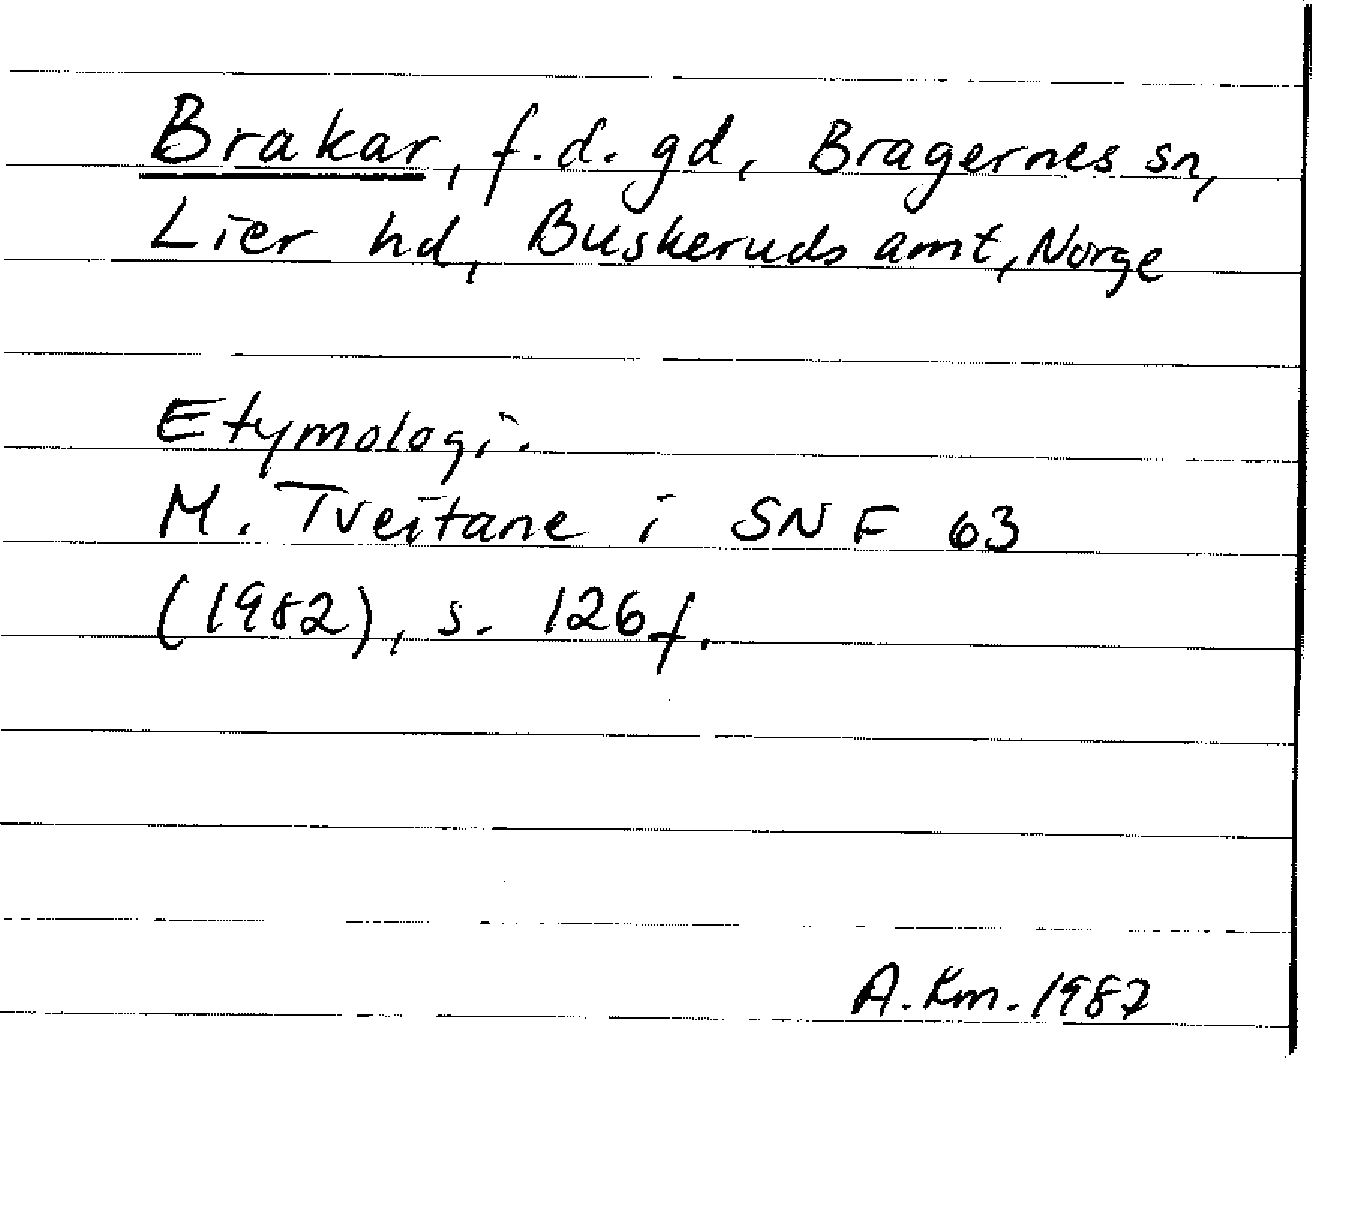 Brakar, f.d. gd, Bragernes sn,
Lier hd, Buskeruds amt, Norge
Etymologi.
M. Tveitane i SNF 63
(1982), s. 126f.
A. Km. 1987